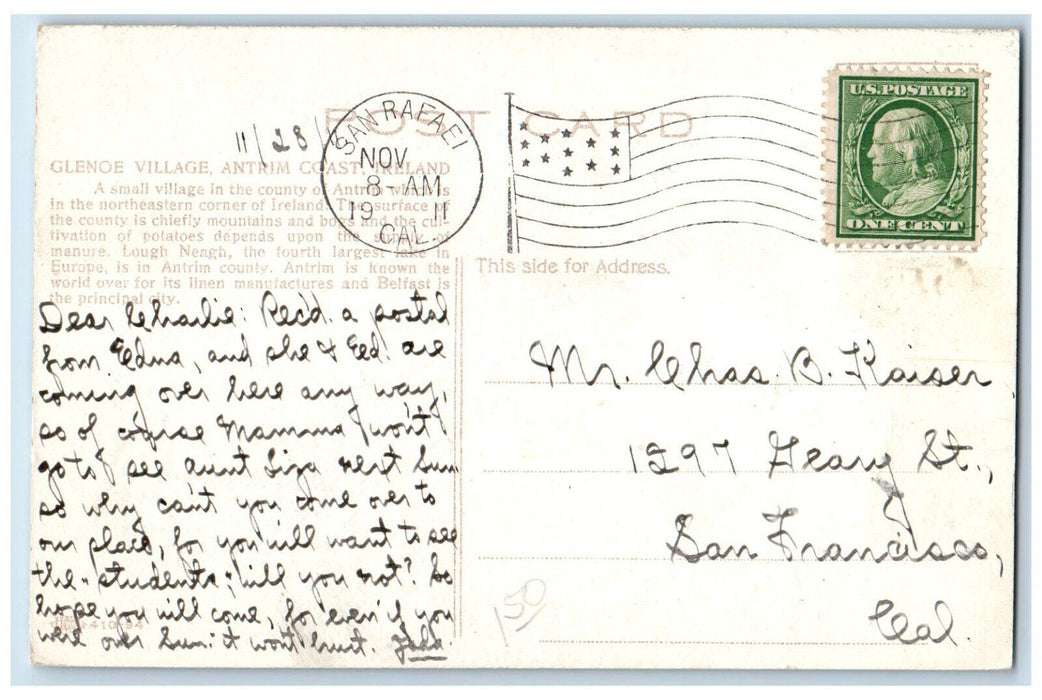 POST CARD
11/28/
SAN RAFAEL
NOV
8 - AM
19 11
CAL.
U.S. POSTAGE
ONE CENT
GLENOE VILLAGE, ANTRIM COAST, IRELAND
A small village in the county of Antrim which is
in the northeastern corner of Ireland. The surface of
the county is chiefly mountains and bogs and the cul-
tivation of potatoes depends upon the supply of
manure. Lough Neagh, the fourth largest lake in
Europe, is in Antrim county. Antrim is known the
world over for its linen manufactures and Belfast is
the principal city.
This side for Address.
Dear Charlie: Rec'd. a postal
from Edna, and she & Eed. are
coming over here any way,
so of course Mamma won't
go to see aunt Liza next Sun
so why can't you come over to
our place, for you will want to see
the "students," will you not? So
hope you will come, for even if you
were over Sun. it won't hurt.
Mr. Chas. B. Kaiser
1297 Geary St.,
San Francisco,
Cal.
150